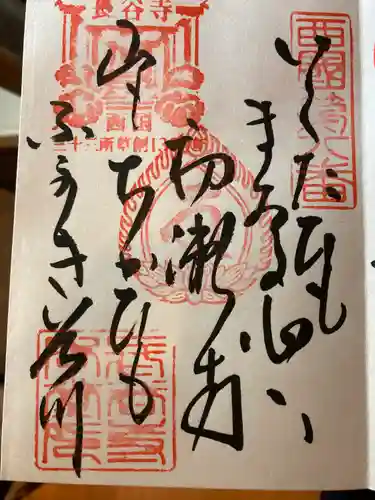 西國第八番
いくたびも
まゐる心ハ
初瀬寺
山もちかひも
ふかき谷川
長谷寺
西国
三十三所草創1300年